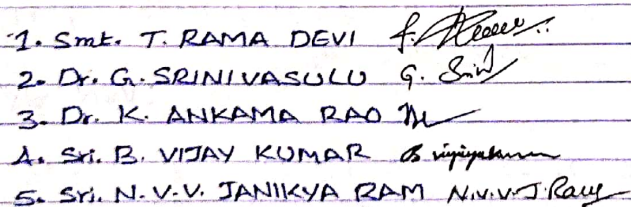 1. Smt. T. RAMA DEVI
2. Dr. G. SRINIVASULU G.
3. Dr. K. ANKAMA RAO
4. Sri. B. VIJAY KUMAR B vijayakumar
5. Sri. N.V.V. JANIKYA RAM N.V.V.J. Ram